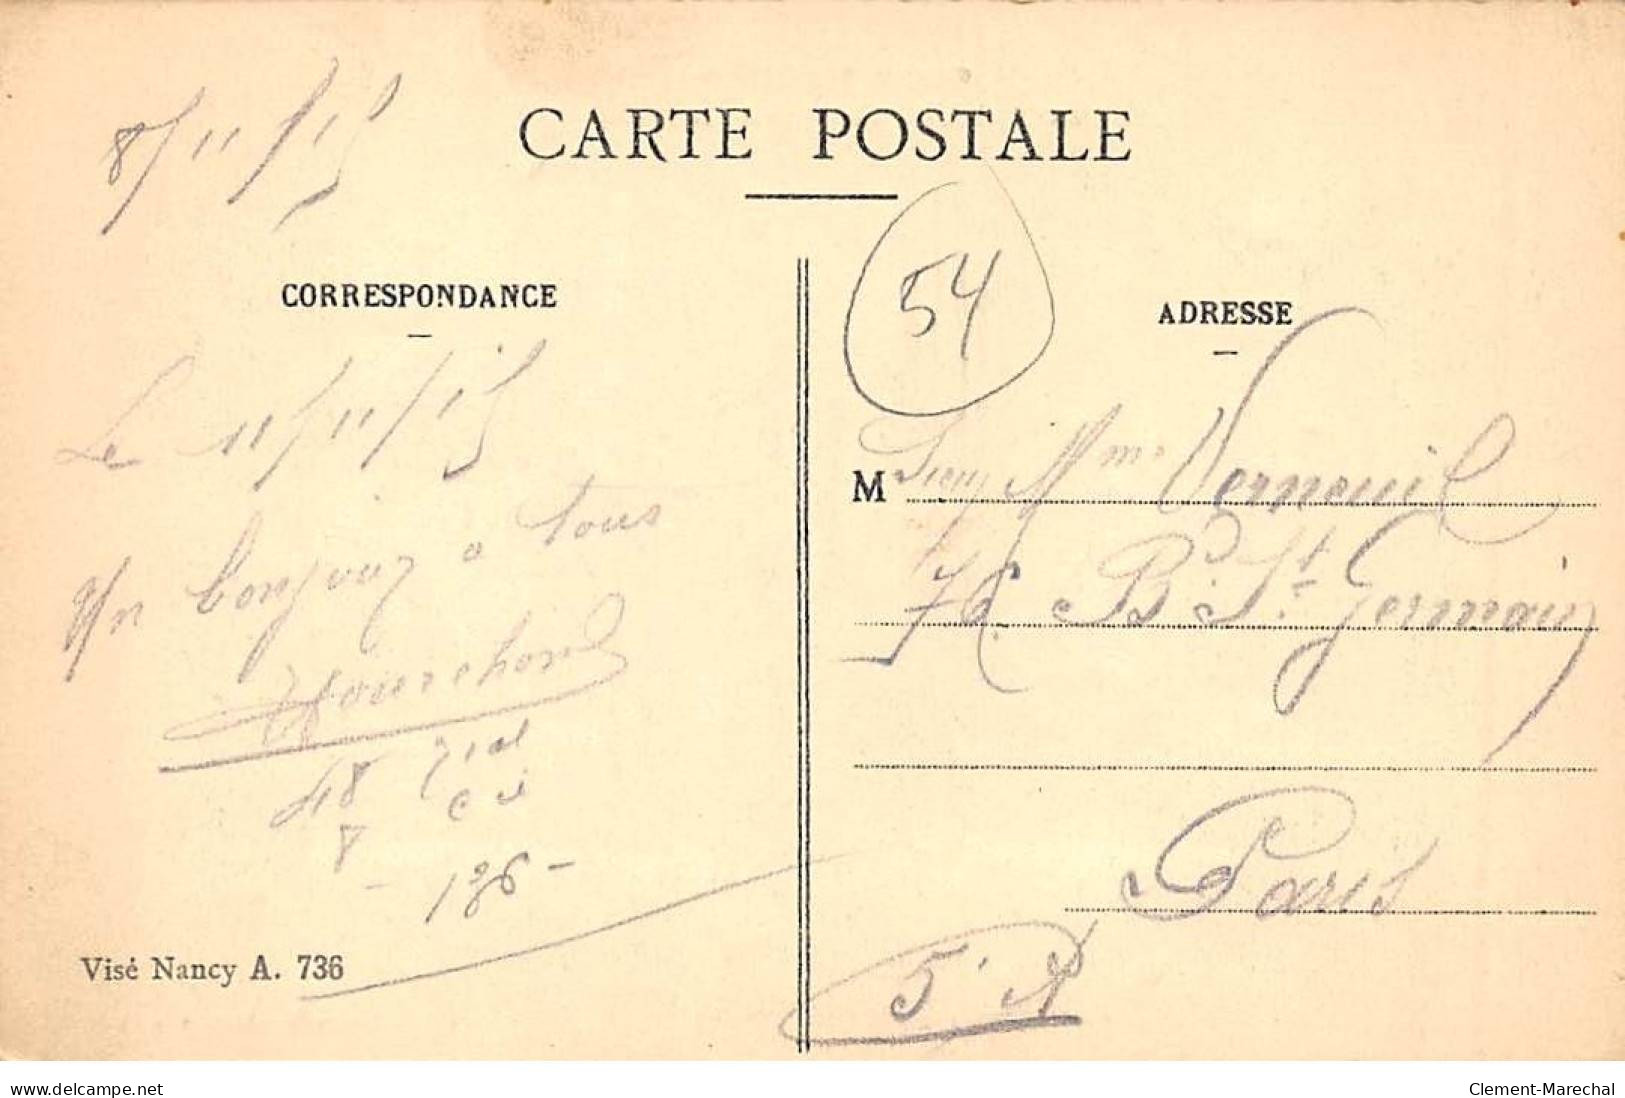 8/11/15
CARTE POSTALE
54
CORRESPONDANCE
ADRESSE
Le 11/11/15
Un bonjour a tous
M Mme Verneuil
76 B. St. Germain
Paris
5' A
48
8
- 136 -
Visé Nancy A. 736
www.delcampe.net
Clement-Marechal